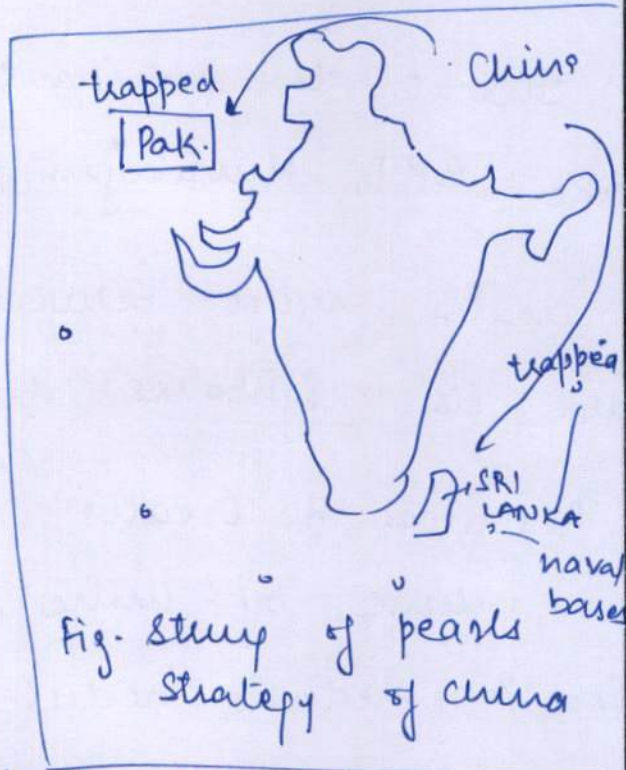 trapped
Pak.
China
trapped
SRI
LANKA
naval
bases
Fig. String of pearls
Strategy of China